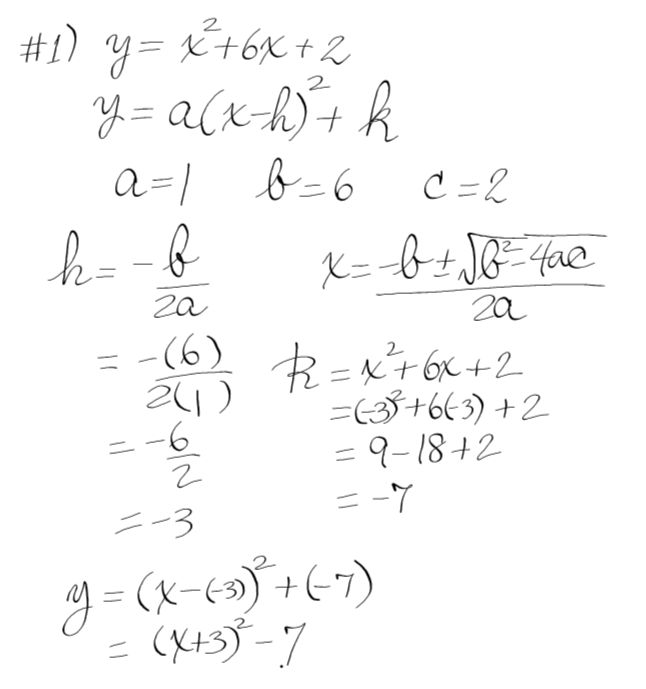 #1) y = x²+6x+2
y = a(x-h)²+ k
a=1 b=6 c=2
h= -b/2a x= -b±√b²-4ac/2a
= -(6)/2(1) k = x²+6x+2
=(-3)²+6(-3)+2
= -6/2 = 9-18+2
= -3 = -7
y = (x-(-3))²+(-7)
= (x+3)²-7